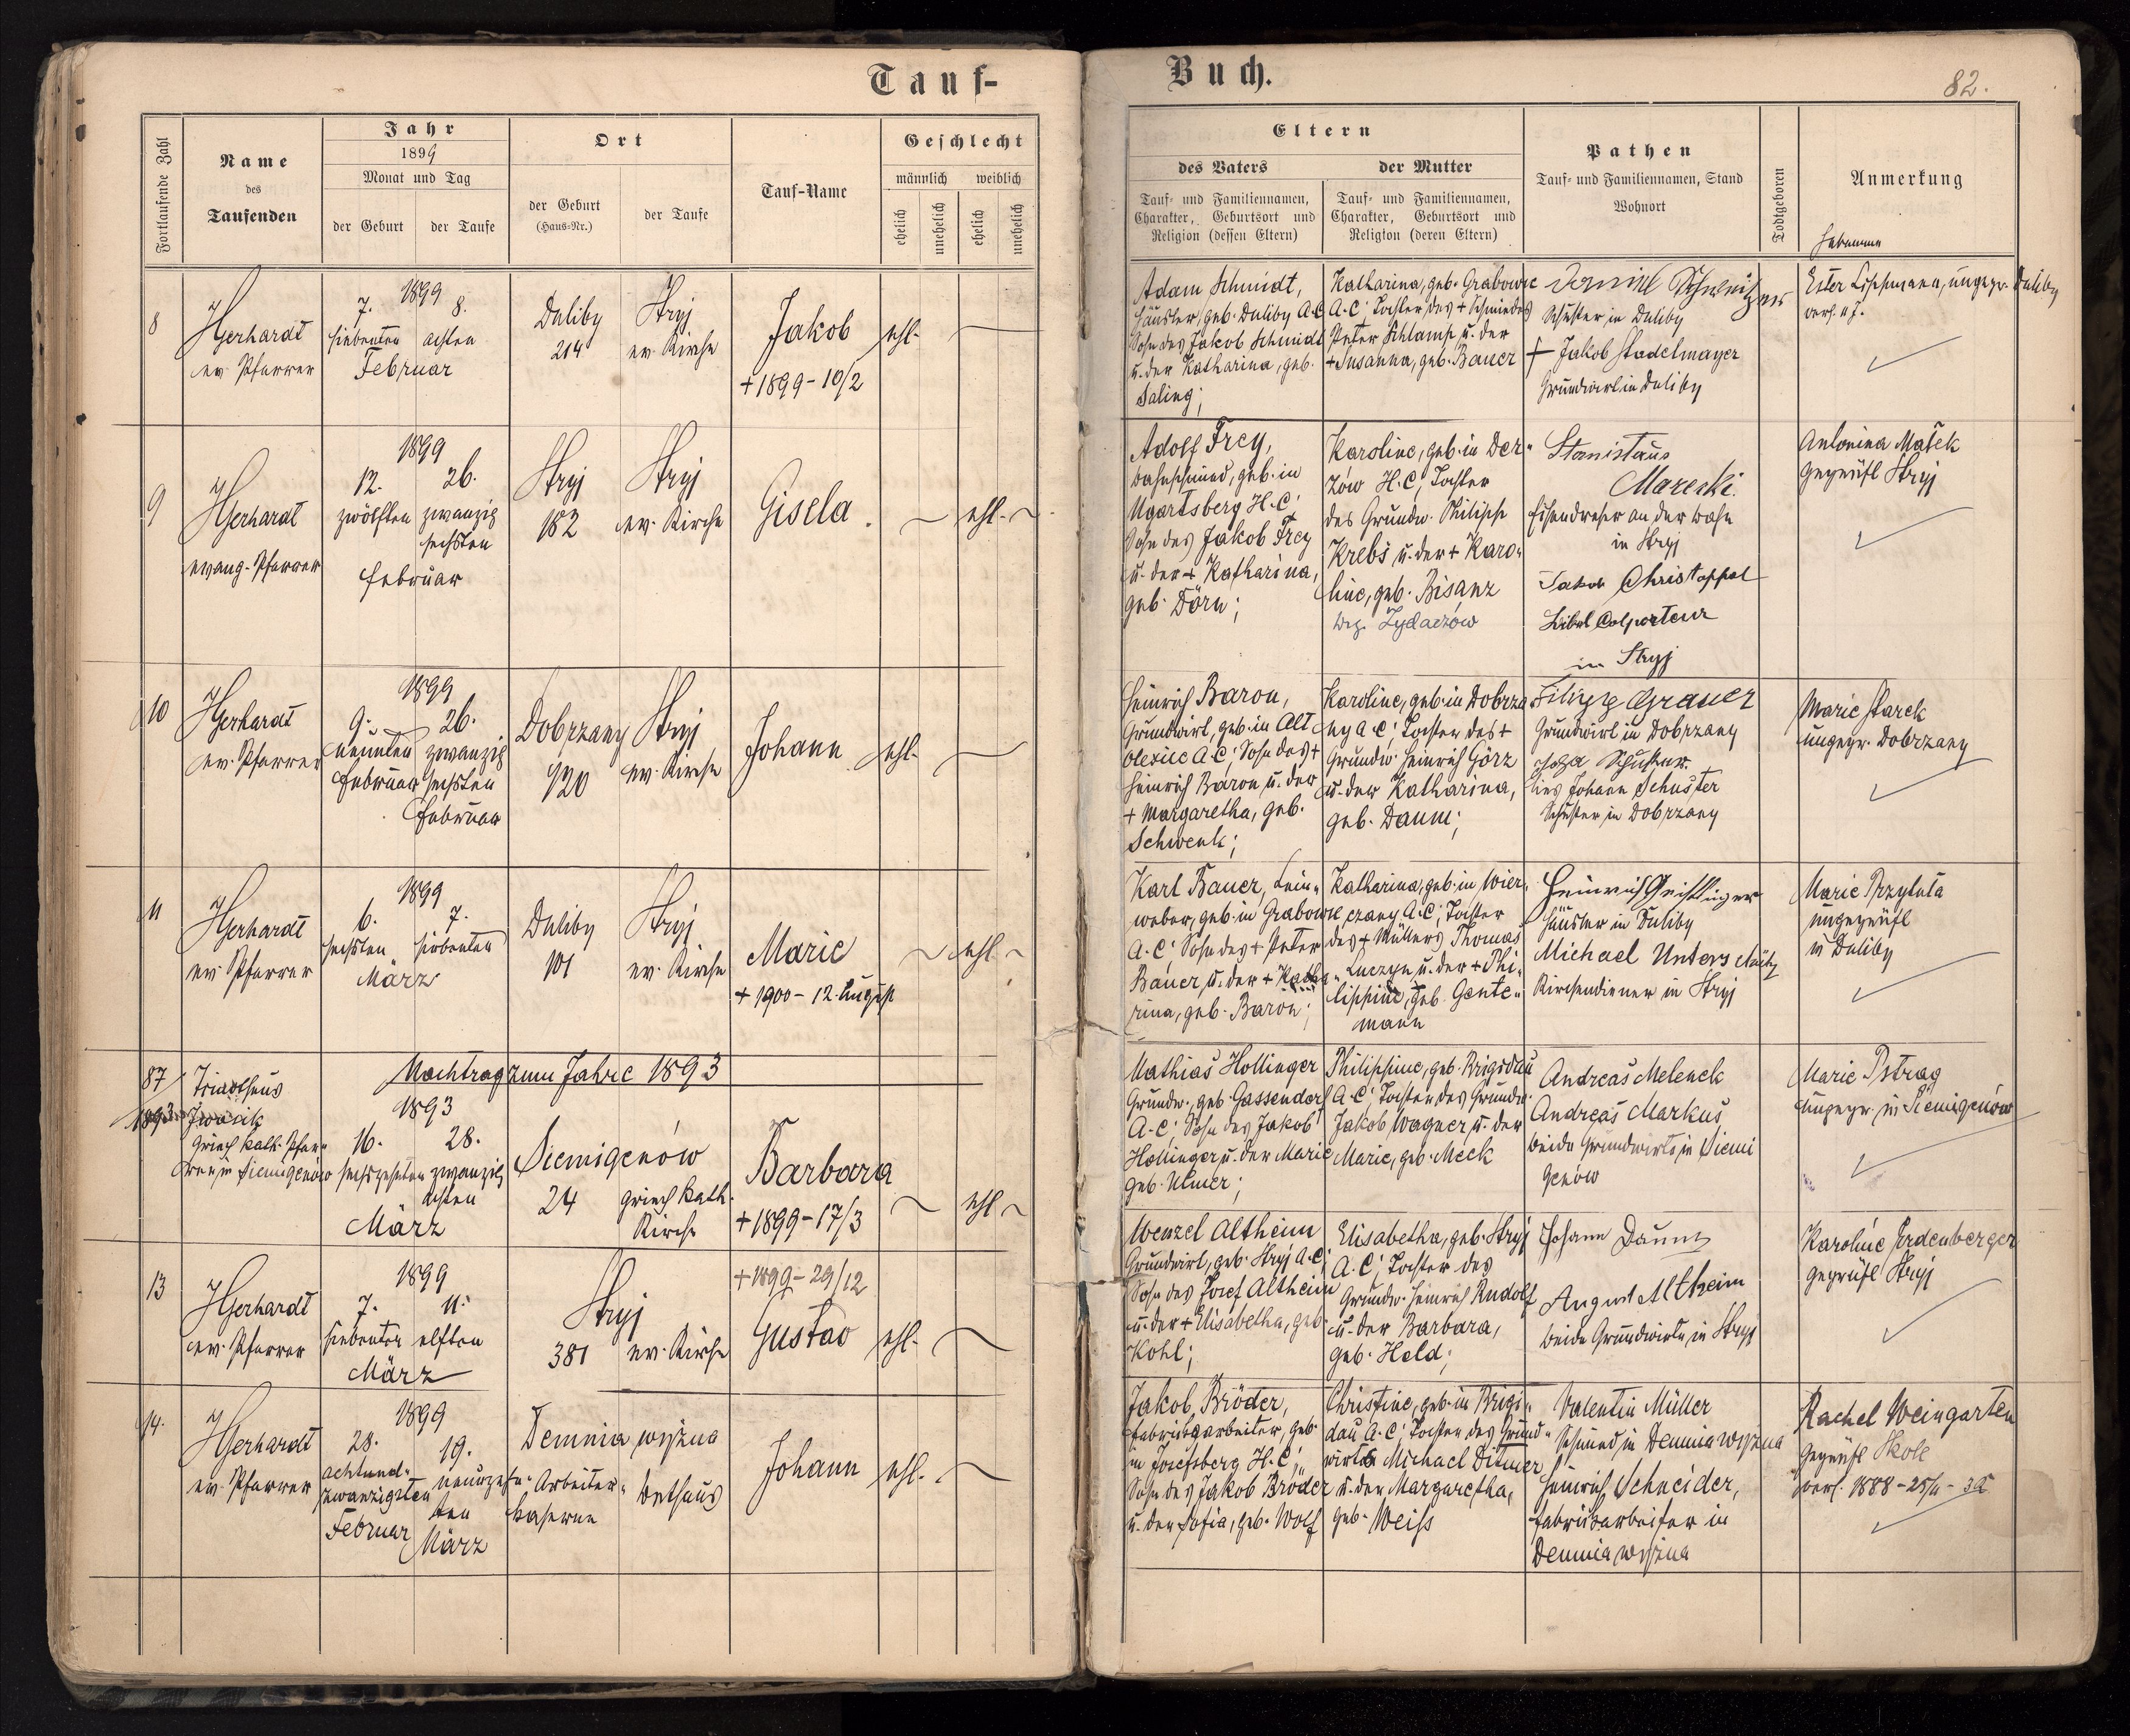 Tauf-
Buch.
82.
Fortlaufende Zahl
Name
des
Taufenden
Jahr
1899
Monat und Tag
der Geburt
der Taufe
Ort
der Geburt
(Haus-Nr.)
der Taufe
Tauf-Name
Geschlecht
männlich
weiblich
ehelich
unehelich
ehelich
unehelich
Eltern
des Vaters
Tauf- und Familiennamen,
Charakter, Geburtsort und
Religion (dessen Eltern)
der Mutter
Tauf- und Familiennamen,
Charakter, Geburtsort und
Religion (deren Eltern)
Pathen
Tauf- und Familiennamen, Stand
Wohnort
Todtgeboren
Anmerkung
Hebamme
8
Gerhardt
ev. Pfarrer
1899
7. 8.
siebenten achten
Februar
Duliby
214
Stryj
ev. Kirche
Jakob
+ 1899 - 10/2
ehl.
Adam Schmidt,
Häusler, geb. Duliby A.C.
Sohn des Jakob Schmidt
u. der Katharina, geb.
Saling;
Katharina, geb. Grabowie
A.C; Tochter des + Schmiedes
Peter Schlamp u. der
+ Susanna, geb. Bauer
Schuster in Duliby
+ Jakob Stadelmayer
Grundwirt in Duliby
Ester Lippmann, ungepr. Duliby
9
Gerhardt
evang. Pfarrer
1899
12. 26.
zwölften zwanzig
sechsten
Februar
Stryj
182
Stryj
ev. Kirche
Gisela.
ehl.
Adolf Frey,
Bahnschmied, geb. in
Ugartsberg H.C;
Sohn des Jakob Frey
u. der + Katharina,
geb. Dörn;
Karoline, geb. in Der-
zow H.C; Tochter
des Grundw. Philipp
Krebs u. der + Karo-
line, geb. Bisanz
bez. Zydaczow
Stanislaus
Mareski.
Eisendreher an der Bahn
in Stryj
Jakob Christophel
Bibel Colporteur
in Stryj
Antonina Mašek
geprüft Stryj
10
Gerhardt
ev. Pfarrer
1899
9. 26.
neunten zwanzig
Februar sechsten
Februar
Dobrzany
120
Stryj
ev. Kirche
Johann
ehl.
Heinrich Baron,
Grundwirt, geb. in Alt
Olexiic A.C; Sohn des +
Heinrich Baron u. der
+ Margaretha, geb.
Schwenk;
Karoline, geb. in Dobrza
ny A.C; Tochter des +
Grundw. Heinrich Görz
u. der Katharina,
geb. Daum;
Filipp Grauer
Grundwirt in Dobrzany
lies Johann Schuster
Schuster in Dobrzany
Marie Starck
ungepr. Dobrzany
11
Gerhardt
ev. Pfarrer
1899
6. 7.
sechsten siebenten
März
Duliby
101
Stryj
ev. Kirche
Marie
+ 1900 - 12. August
ehl.
Karl Bauer, Lein-
weber, geb. in Grabowie
A.C; Sohn des + Peter
Bauer u. der + Katha-
rina, geb. Baron;
Katharina, geb. in Wier-
czany A.C; Tochter
des + Müllers Thomas
Luczyn u. der + Phi-
lippine, geb. Gente-
mann
Heinrich Geistlinger
Häusler in Duliby
Michael Unterschütz
Kirchendiener in Stryj
Marie Przytuła
ungeprüft
in Duliby
87/
1893
Nachtrag zum Jahre 1893
griech. kath. Pfar-
rer in Siemigenów
1893
16. 28.
sechszehnten zwanzig
achten
März
Siemigenów
24
griech. kath.
Kirche
Barbara
+ 1899 - 17/3
ehl.
Mathias Hollinger
Grundw., geb. Gassendorf
A.C; Sohn des Jakob
Hollinger u. der Marie
geb. Ulmer;
Philippine, geb. Brigidau
A.C; Tochter des Grundw.
Jakob Wagner u. der
Marie, geb. Meck
Andreas Melenek
Andreas Markus
beide Grundwirte in Siemi
genów
Marie Pstrag
ungepr. in Siemigenów
13
Gerhardt
ev. Pfarrer
1899
7. 11.
siebenten elften
März
Stryj
381
ev. Kirche
+ 1899 - 29/12
Gustav
ehl.
Wenzel Altheim
Grundwirt, geb. Stryj A.C;
Sohn des Josef Altheim
u. der + Elisabetha, geb.
Kohl;
Elisabetha, geb. Stryj
A.C; Tochter des
Grundw. Heinrich Rudolf
u. der Barbara,
geb. Held;
Johann Daum
August Altheim
beide Grundwirte in Stryj
Karoline Erdenberger
geprüft Stryj
14.
Gerhardt
ev. Pfarrer
1899
28. 19.
achtund-
zwanzigsten neunzehn-
ten
Februar März
Demnia wyżna
Arbeiter-
kaserne
Bethaus
Johann
ehl.
Jakob Bröder,
Fabriksarbeiter, geb.
in Josefsberg H.C;
Sohn des Jakob Bröder
u. der Sofia, geb. Wolf
Christine, geb. in Brigi-
dau A.C; Tochter des Grund-
wirts Michael Ditmer
u. der Margaretha,
geb. Weiss
Valentin Müller
Schmied in Demnia wyżna
Heinrich Schneider,
Fabriksarbeiter in
Demnia wyżna
Rachel Weingarten
geprüft Skole